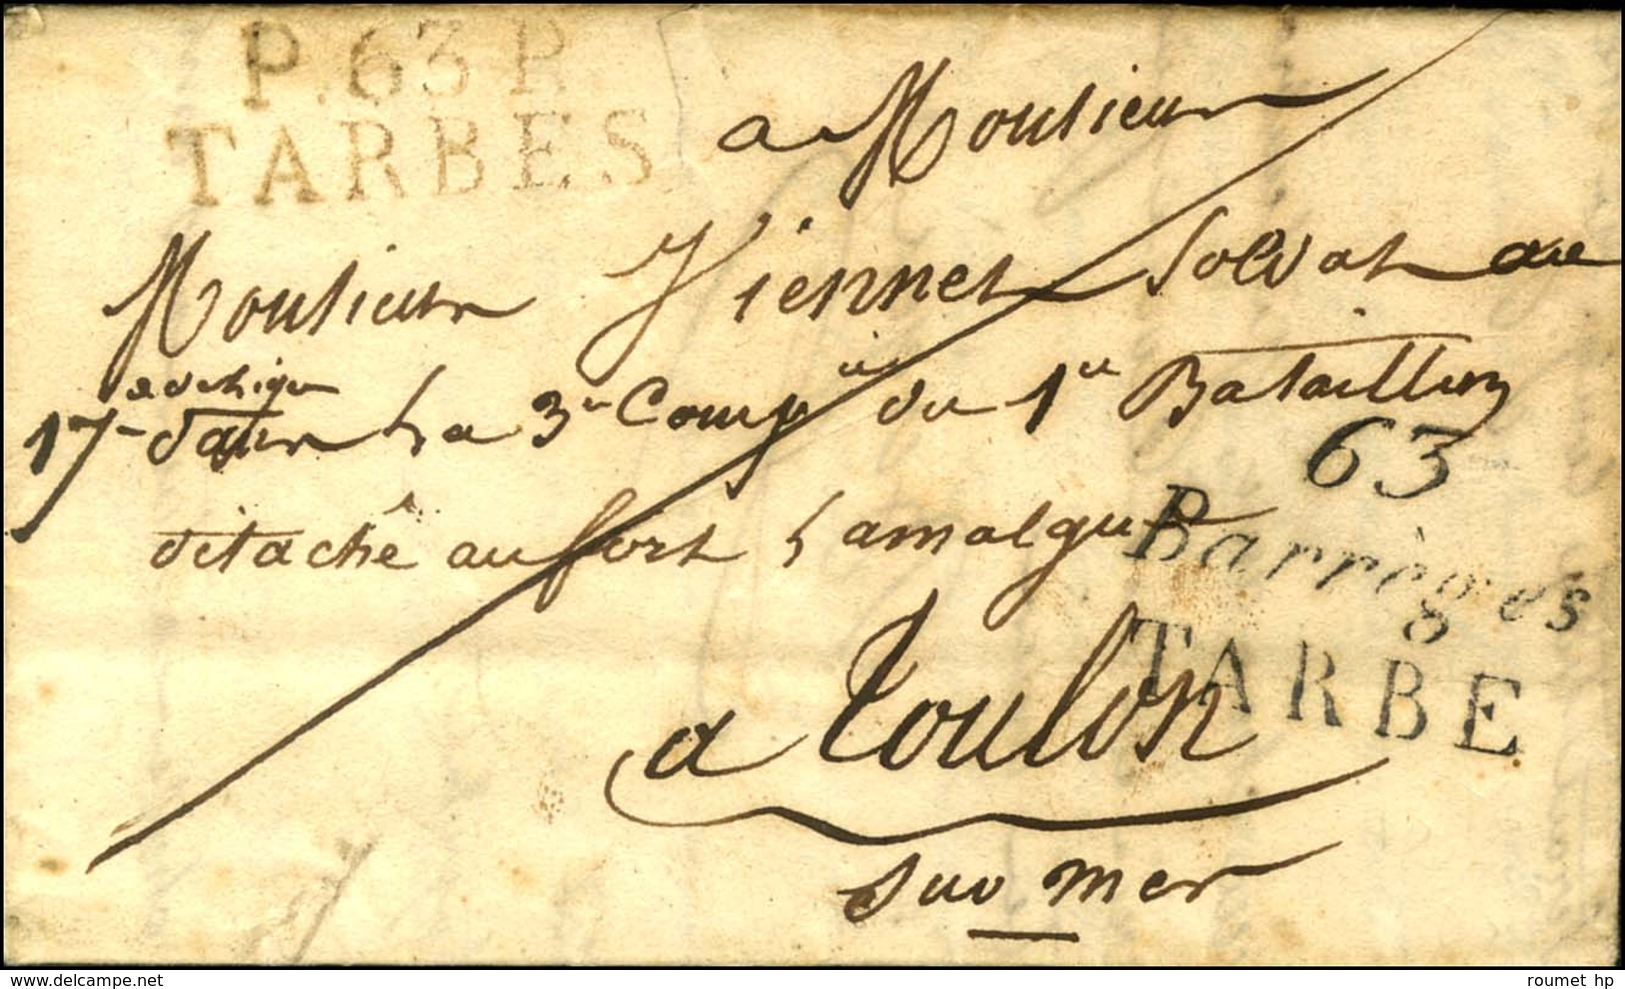 P.63.P.
TARBES
a Monsieur
Monsieur Viennet Soldat au
17e Ler la 3e Compie du 1er Bataillon
détaché au fort Lamalgue
63
Barrèges
TARBE
a Toulon
sur mer
roumet hp